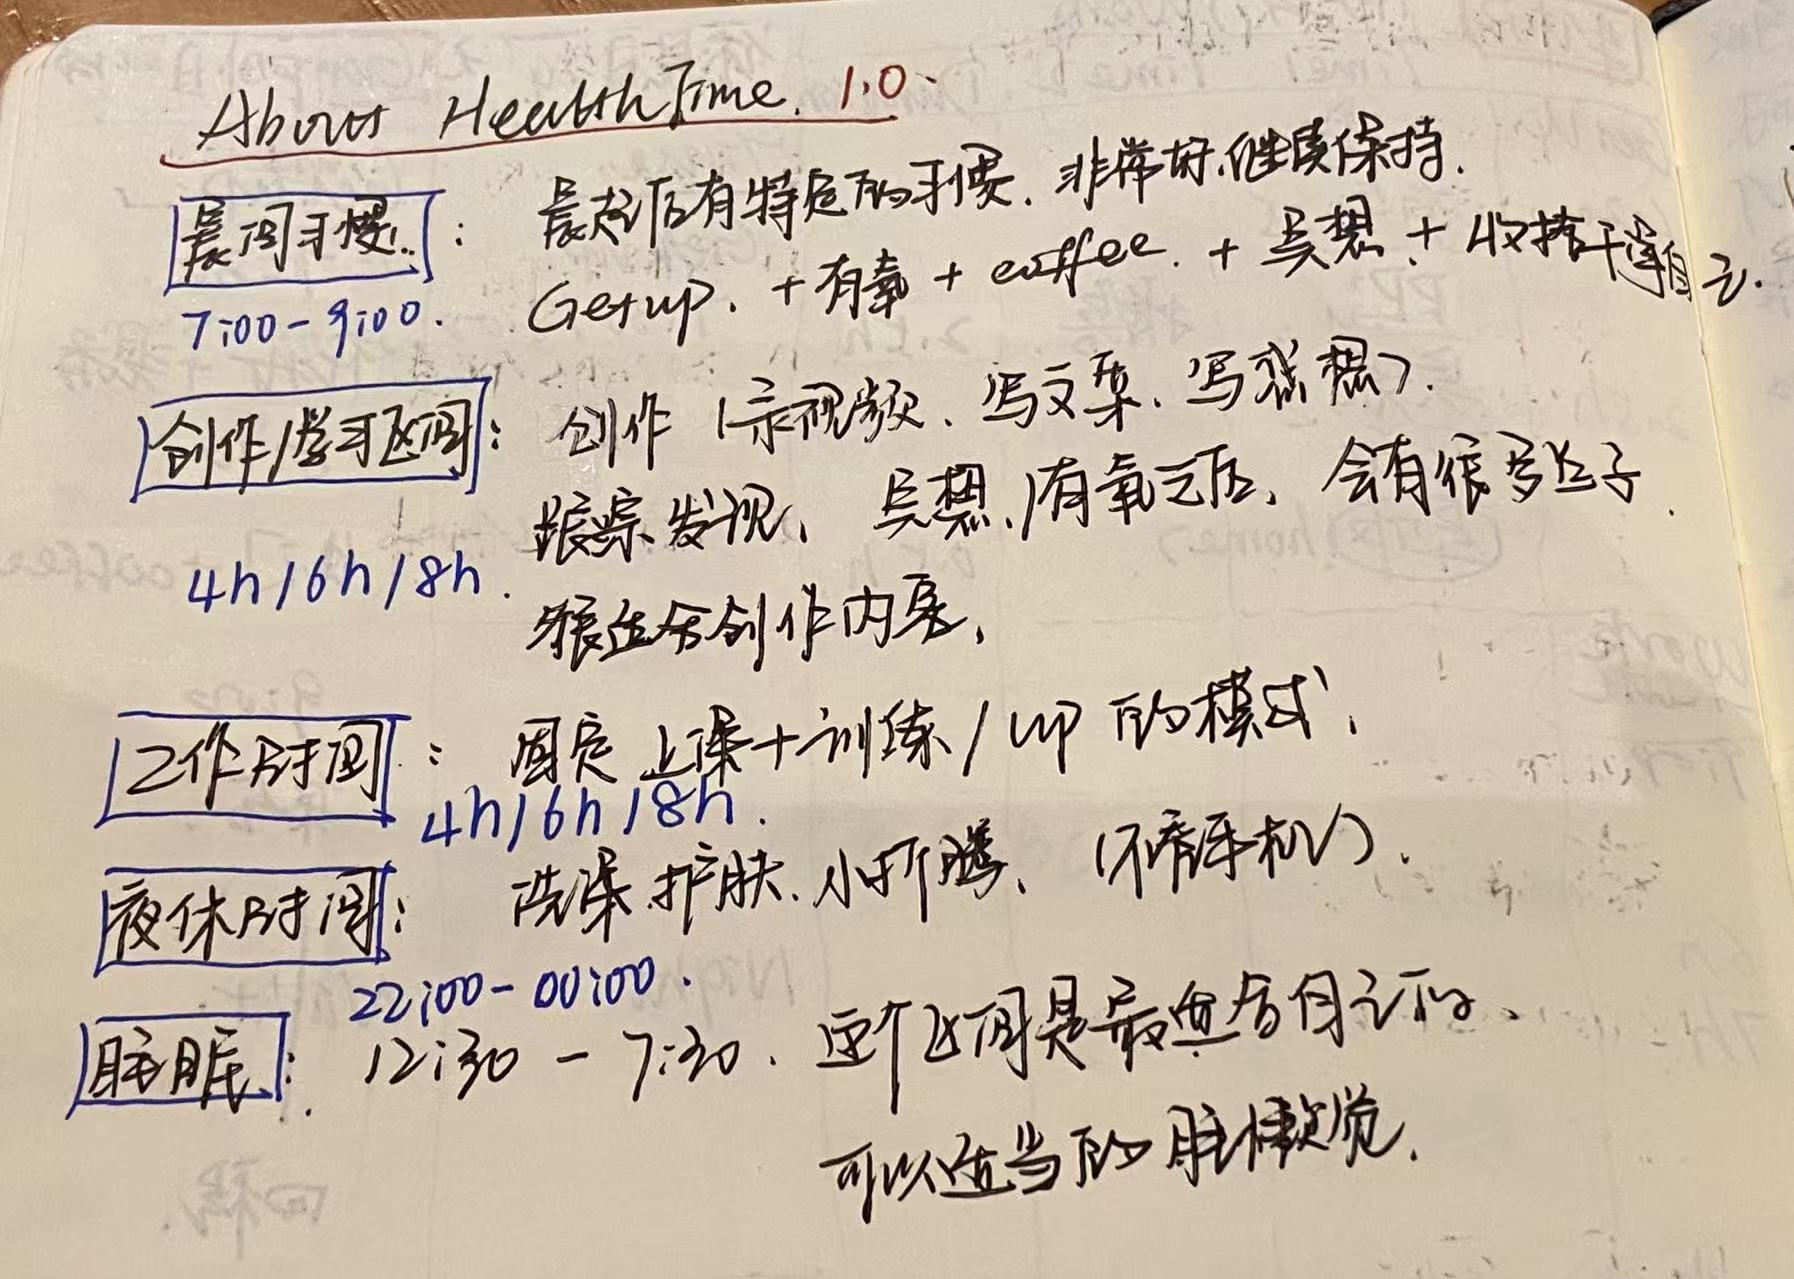 About Health Time. 1.0.
晨间习惯: 晨起后有特定的习惯. 非常好,继续保持.
7:00-9:00. Get up. + 有氧 + coffee. + 冥想 + 收拾干净自己.
创作/学习区间: 创作 (录视频、写文案、写感想).
跟踪发现、冥想/有氧之后、会有很多点子.
4h/6h/8h. 很适合创作内容、
工作时间: 固定上课+训练/up的模式、
4h/6h/8h.
夜休时间: 洗澡.护肤.小折腾、(不看手机).
22:00-00:00.
睡眠: 12:30 - 7:30. 这个区间是最适合自己的、
可以适当的睡懒觉.